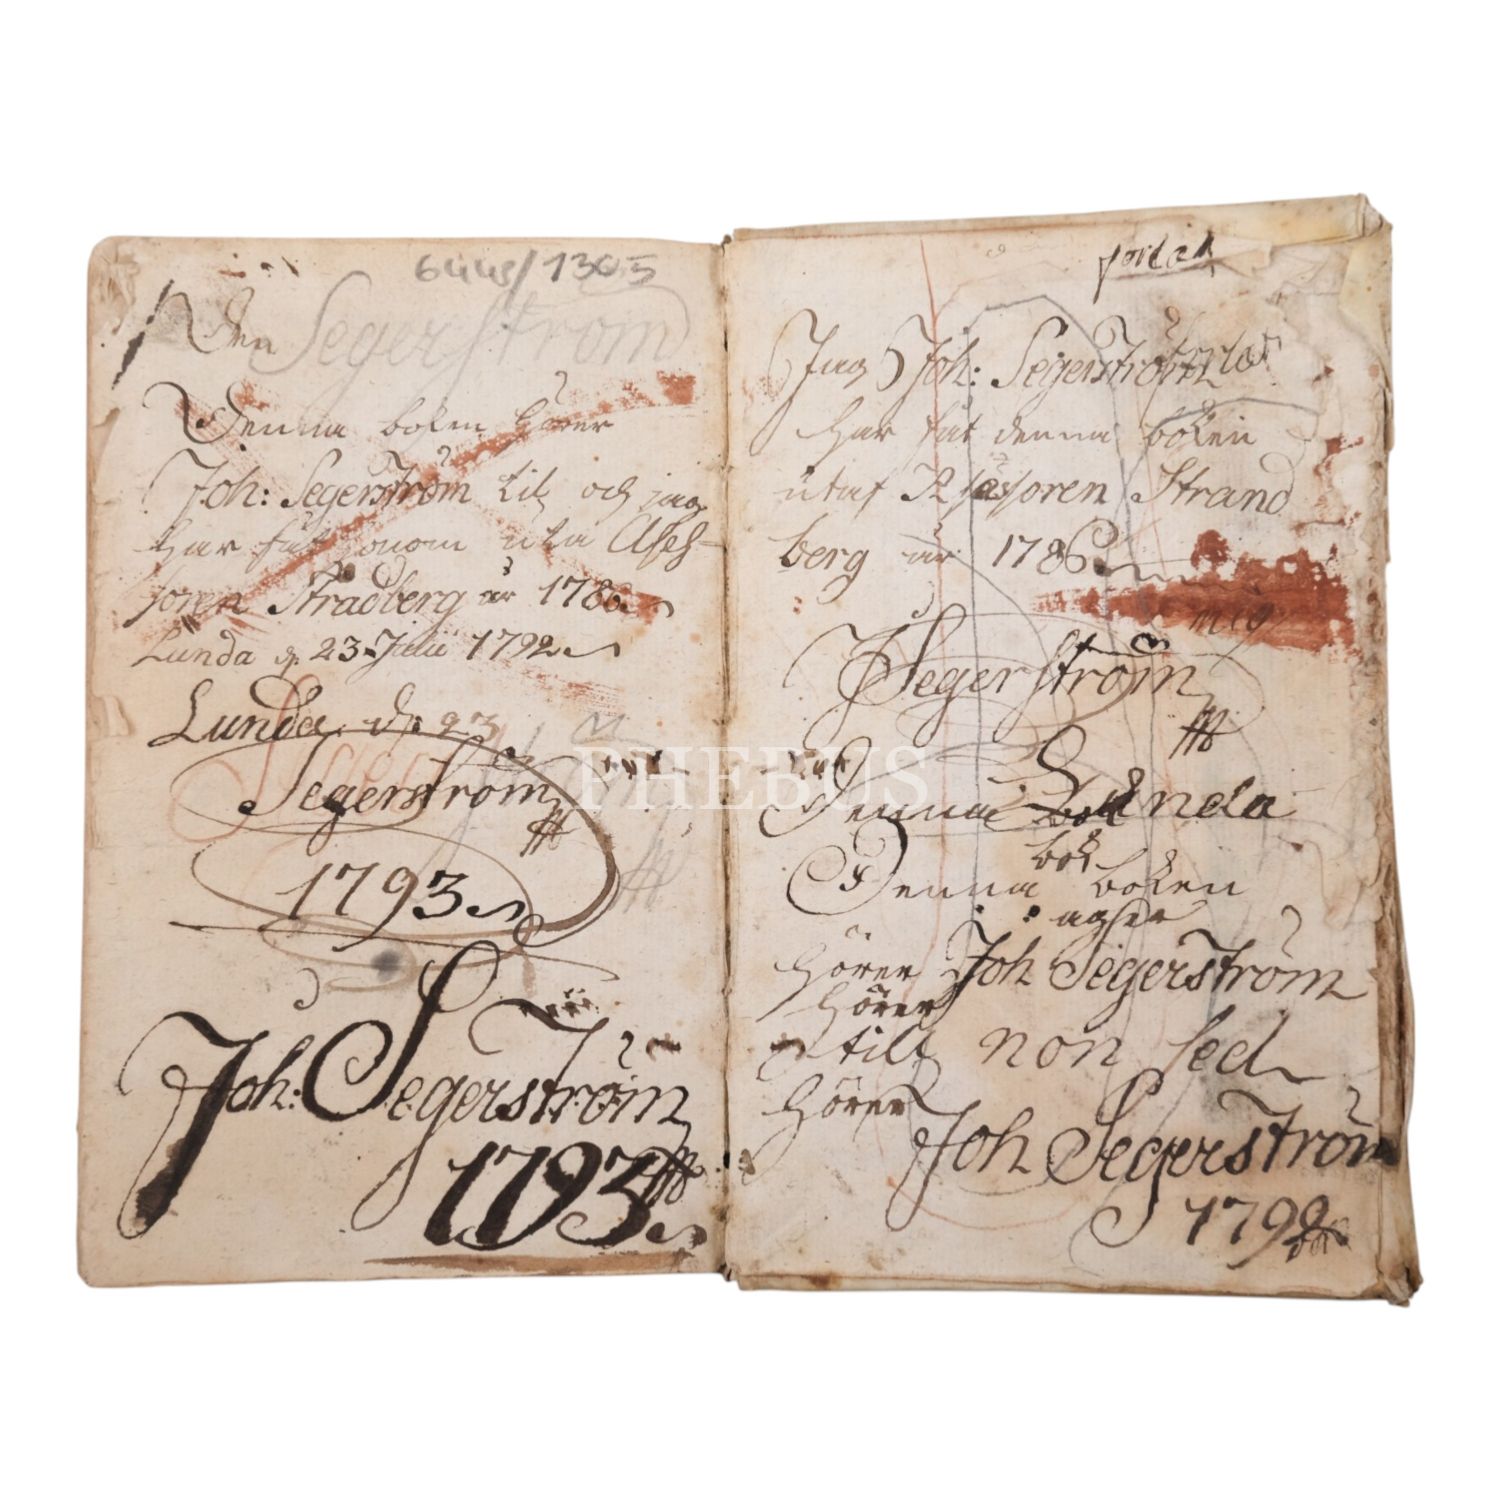 6448/1305
Den Segerström
Denna boken hörer
Joh: Segerström till och jag
har fåt honom uta Asess-
soren Stradberg år 1786
Lunda d. 23 Julii 1792
Lunda d: 23
Segerström
1793
Joh: Segerström
1793
Jag Joh: Segerström
har fåt denna boken
utaf Assessoren Strand
berg år 1786
mig
JSegerström
Denna Lunda
bok
Denna boken
ägher
hörer Joh Segerström
hörer
till non sed
hörer
Joh Segerström
1792
PHEBUS